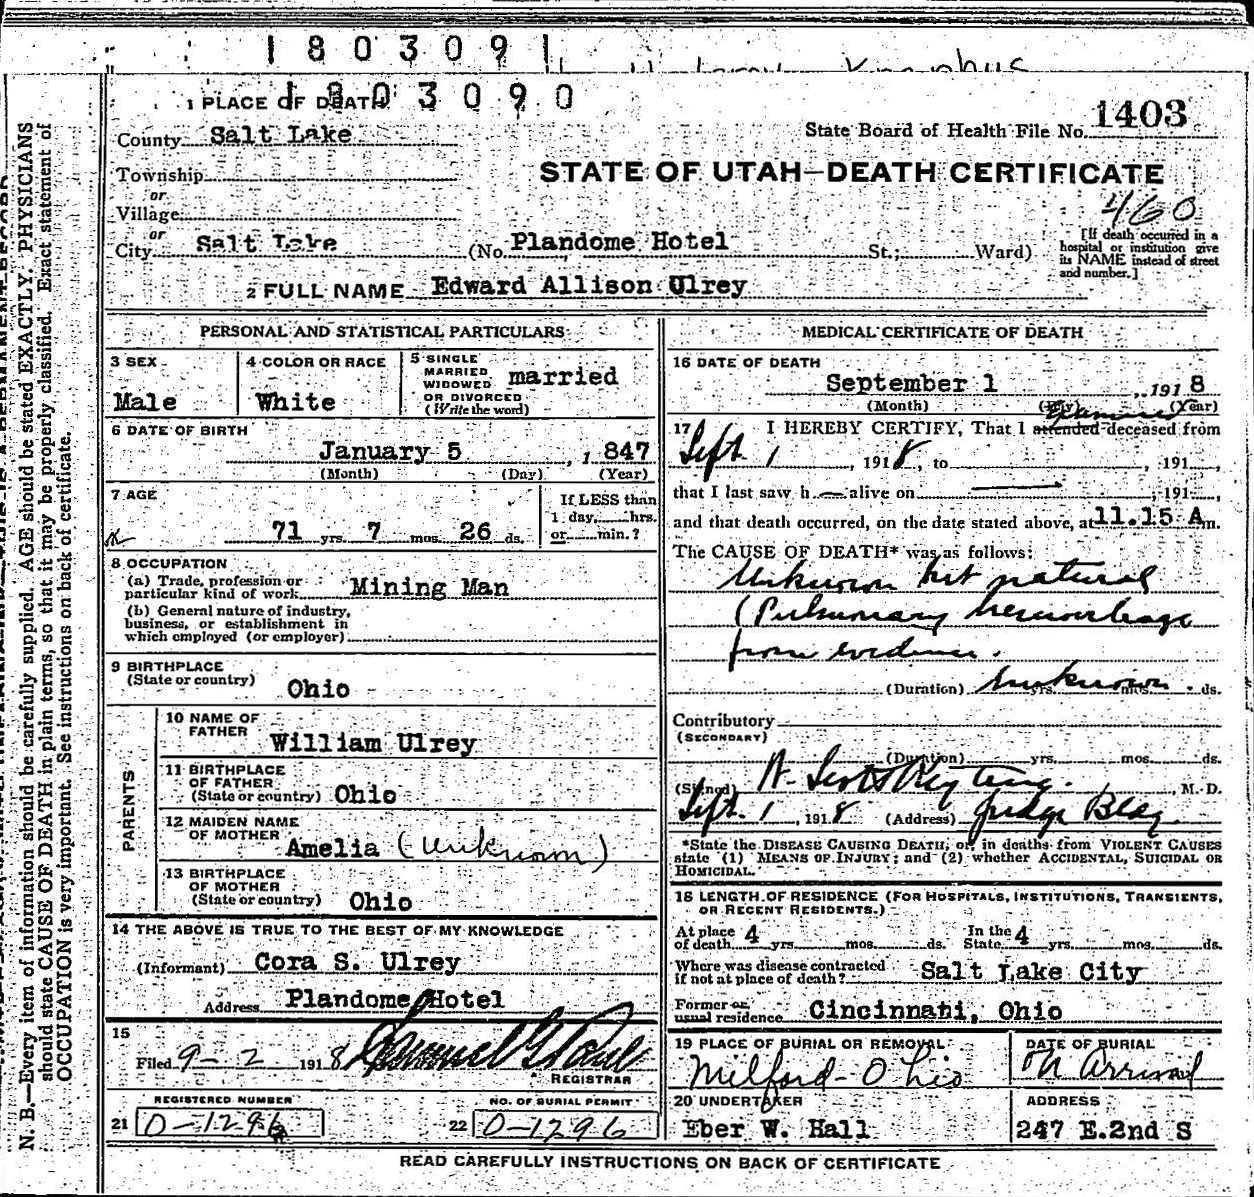 1803091
1803090
1 PLACE OF DEATH
County Salt Lake
State Board of Health File No. 1403
Township
or
Village
or
City Salt Lake
STATE OF UTAH—DEATH CERTIFICATE
460
(No. Plandome Hotel St.; Ward)
[If death occurred in a
hospital or institution give
its NAME instead of street
and number.]
2 FULL NAME Edward Allison Ulrey
PERSONAL AND STATISTICAL PARTICULARS
3 SEX
Male
4 COLOR OR RACE
White
5 SINGLE
MARRIED
WIDOWED
OR DIVORCED
(Write the word)
married
6 DATE OF BIRTH
January 5, 1847
(Month) (Day) (Year)
7 AGE
71 yrs. 7 mos. 26 ds.
If LESS than
1 day,......hrs.
or......min.?
8 OCCUPATION
(a) Trade, profession or
particular kind of work Mining Man
(b) General nature of industry,
business, or establishment in
which employed (or employer)
9 BIRTHPLACE
(State or country) Ohio
PARENTS
10 NAME OF
FATHER William Ulrey
11 BIRTHPLACE
OF FATHER
(State or country) Ohio
12 MAIDEN NAME
OF MOTHER Amelia (Unknown)
13 BIRTHPLACE
OF MOTHER
(State or country) Ohio
14 THE ABOVE IS TRUE TO THE BEST OF MY KNOWLEDGE
(Informant) Cora S. Ulrey
Address Plandome Hotel
15
Filed 9-2 1918 Samuel G Paul
REGISTRAR
REGISTERED NUMBER
21 0-1296
NO. OF BURIAL PERMIT
22 0-1296
MEDICAL CERTIFICATE OF DEATH
16 DATE OF DEATH
September 1, 1918
(Month) (Day) (Year)
17 I HEREBY CERTIFY, That I attended examined deceased from
Sept. 1, 1918, to , 191
that I last saw h — alive on — , 191
and that death occurred, on the date stated above, at 11.15 A m.
The CAUSE OF DEATH* was as follows:
Unknown but natural
(Pulmonary hemorrhage
from evidence.
(Duration) unknown yrs. mos. ds.
Contributory
(SECONDARY)
(Duration) yrs. mos. ds.
(Signed) , M. D.
Sept. 1, 1918 (Address) Judge Bldg.
*State the DISEASE CAUSING DEATH, or, in deaths from VIOLENT CAUSES
state (1) MEANS OF INJURY; and (2) whether ACCIDENTAL, SUICIDAL OR
HOMICIDAL.
18 LENGTH OF RESIDENCE (FOR HOSPITALS, INSTITUTIONS, TRANSIENTS,
OR RECENT RESIDENTS.)
At place
of death 4 yrs. mos. ds. In the
State 4 yrs. mos. ds.
Where was disease contracted
if not at place of death? Salt Lake City
Former or
usual residence Cincinnati, Ohio
19 PLACE OF BURIAL OR REMOVAL
Milford-Ohio
DATE OF BURIAL
On Arrival
20 UNDERTAKER
Eber W. Hall
ADDRESS
247 E.2nd S
READ CAREFULLY INSTRUCTIONS ON BACK OF CERTIFICATE
N. B.—Every item of information should be carefully supplied. AGE should be stated EXACTLY. PHYSICIANS
should state CAUSE OF DEATH in plain terms, so that it may be properly classified. Exact statement of
OCCUPATION is very important. See instructions on back of certificate.